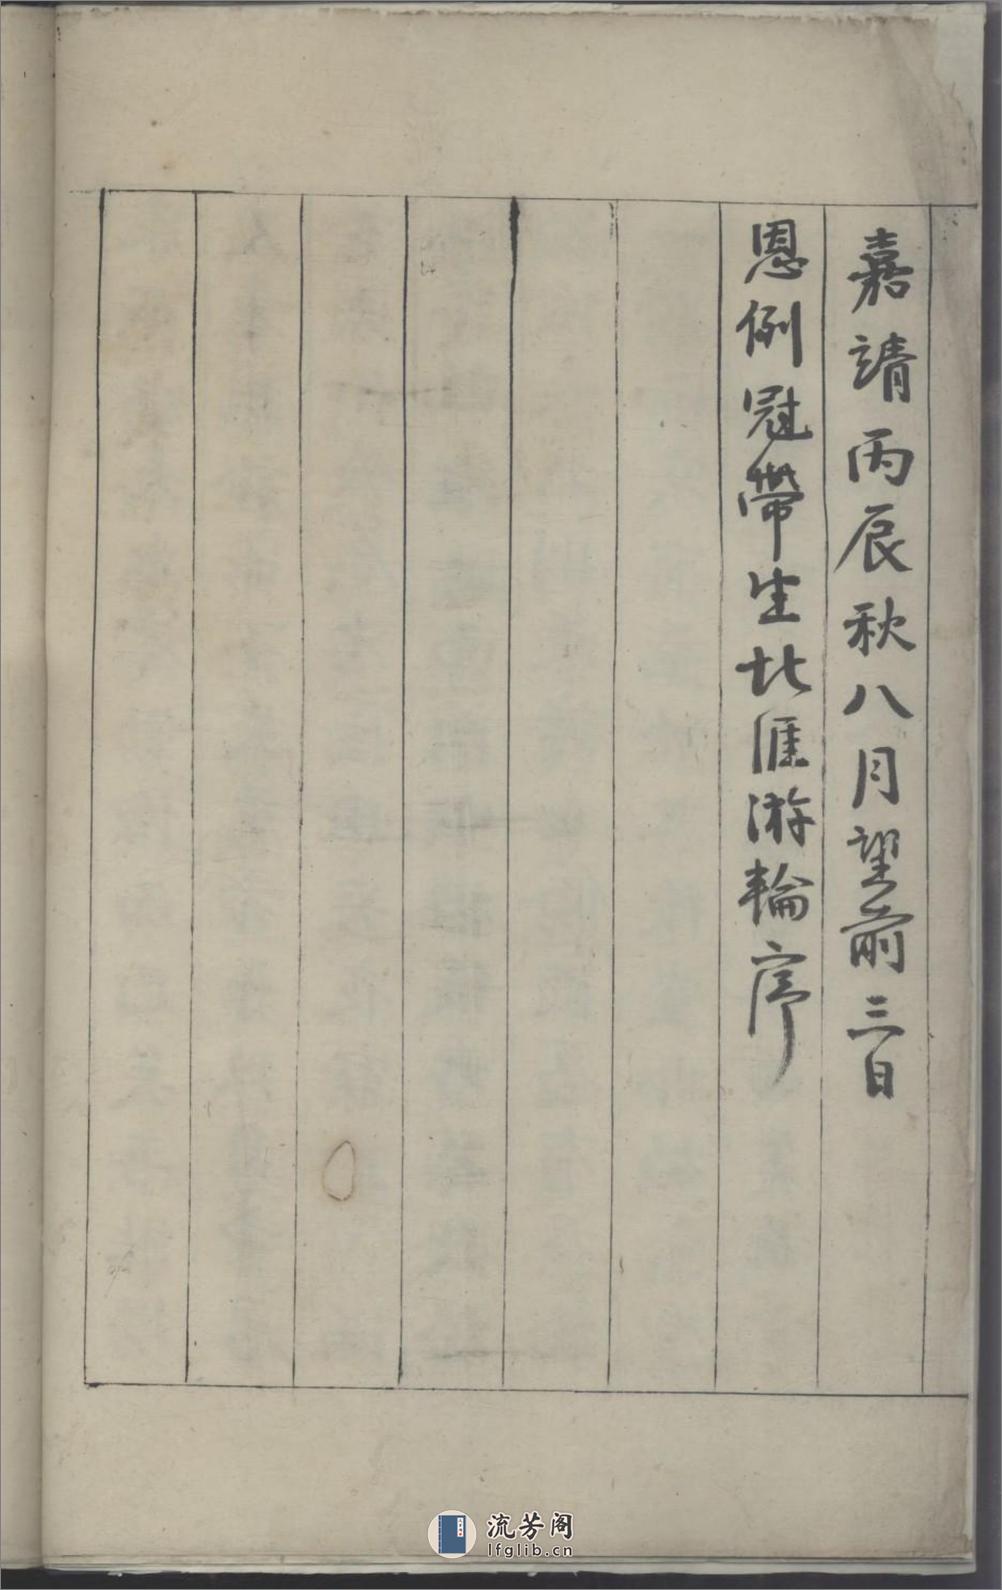 嘉靖丙辰秋八月望前三日
恩例冠帶生北涯游輪序
流芳阁
lfglib.cn